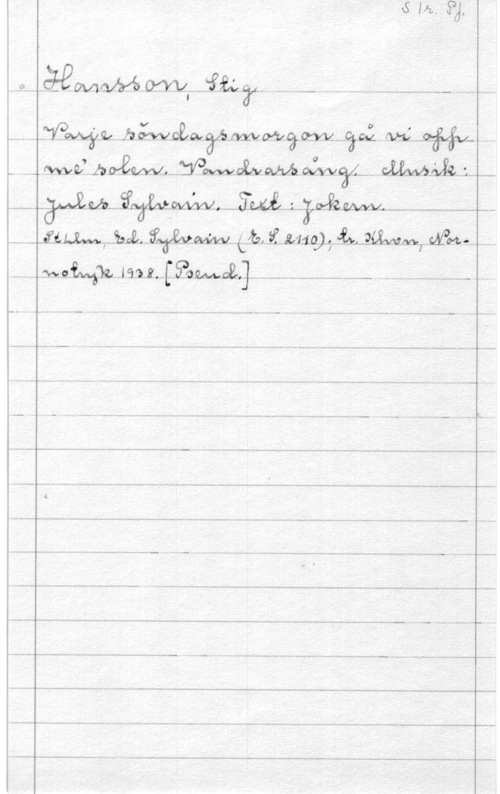 S tr. Pf.
Hansson, Stig
Varje söndagsmorgon gå vi opp
me' solen. Vandrarsång. Musik:
Jules Sylvain. Text: Jokern.
Sthlm, Ed. Sylvain (E. S. 2110); tr. Khvn, Nor-
notryk 1938. [Pseud.]